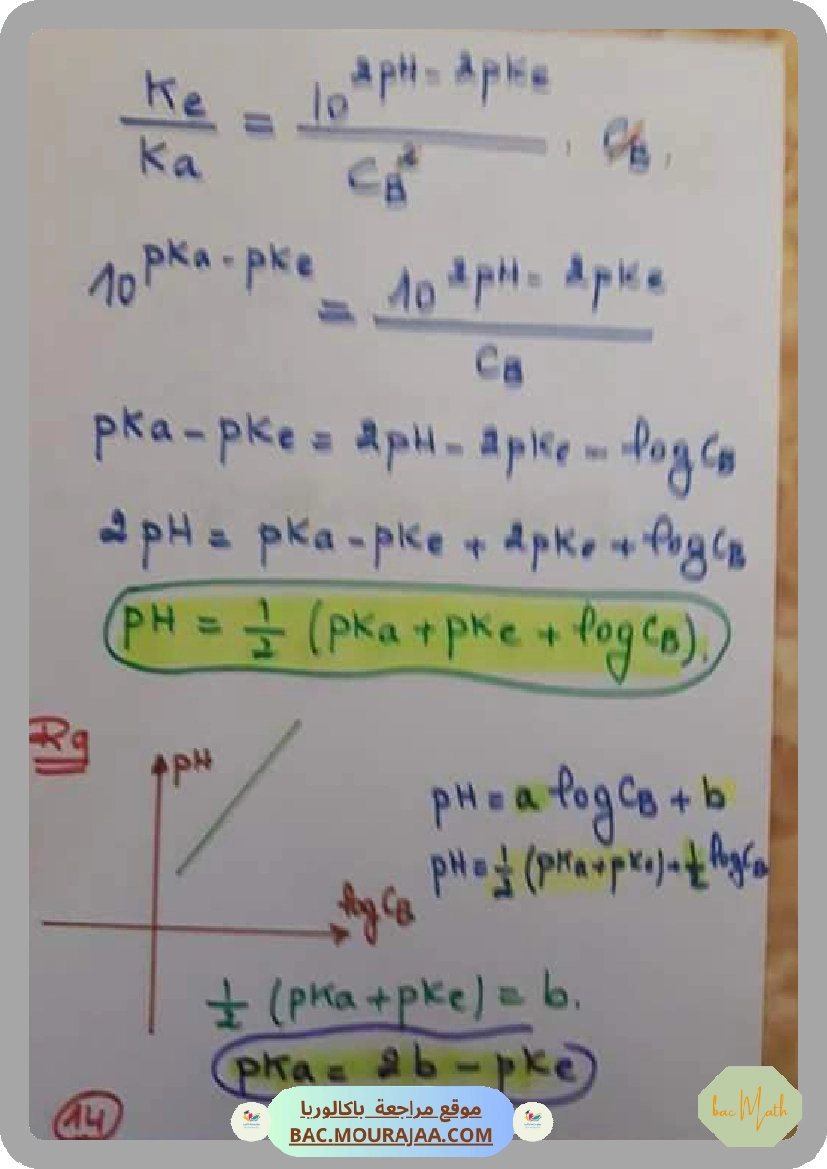 Ke/Ka = 10^(2pH - 2pKe)/CB² . CB.
10^(pKa - pKe) = 10^(2pH - 2pKe)/CB
pKa - pKe = 2pH - 2pKe - log CB
2pH = pKa - pKe + 2pKe + log CB
pH = 1/2 (pKa + pKe + log CB).
Rq
pH
pH = a log CB + b
pH = 1/2 (pKa + pKe) + 1/2 log CB
log CB
1/2 (pKa + pKe) = b.
pKa = 2b - pKe
14
موقع مراجعة باكالوريا
BAC.MOURAJAA.COM
bac Math